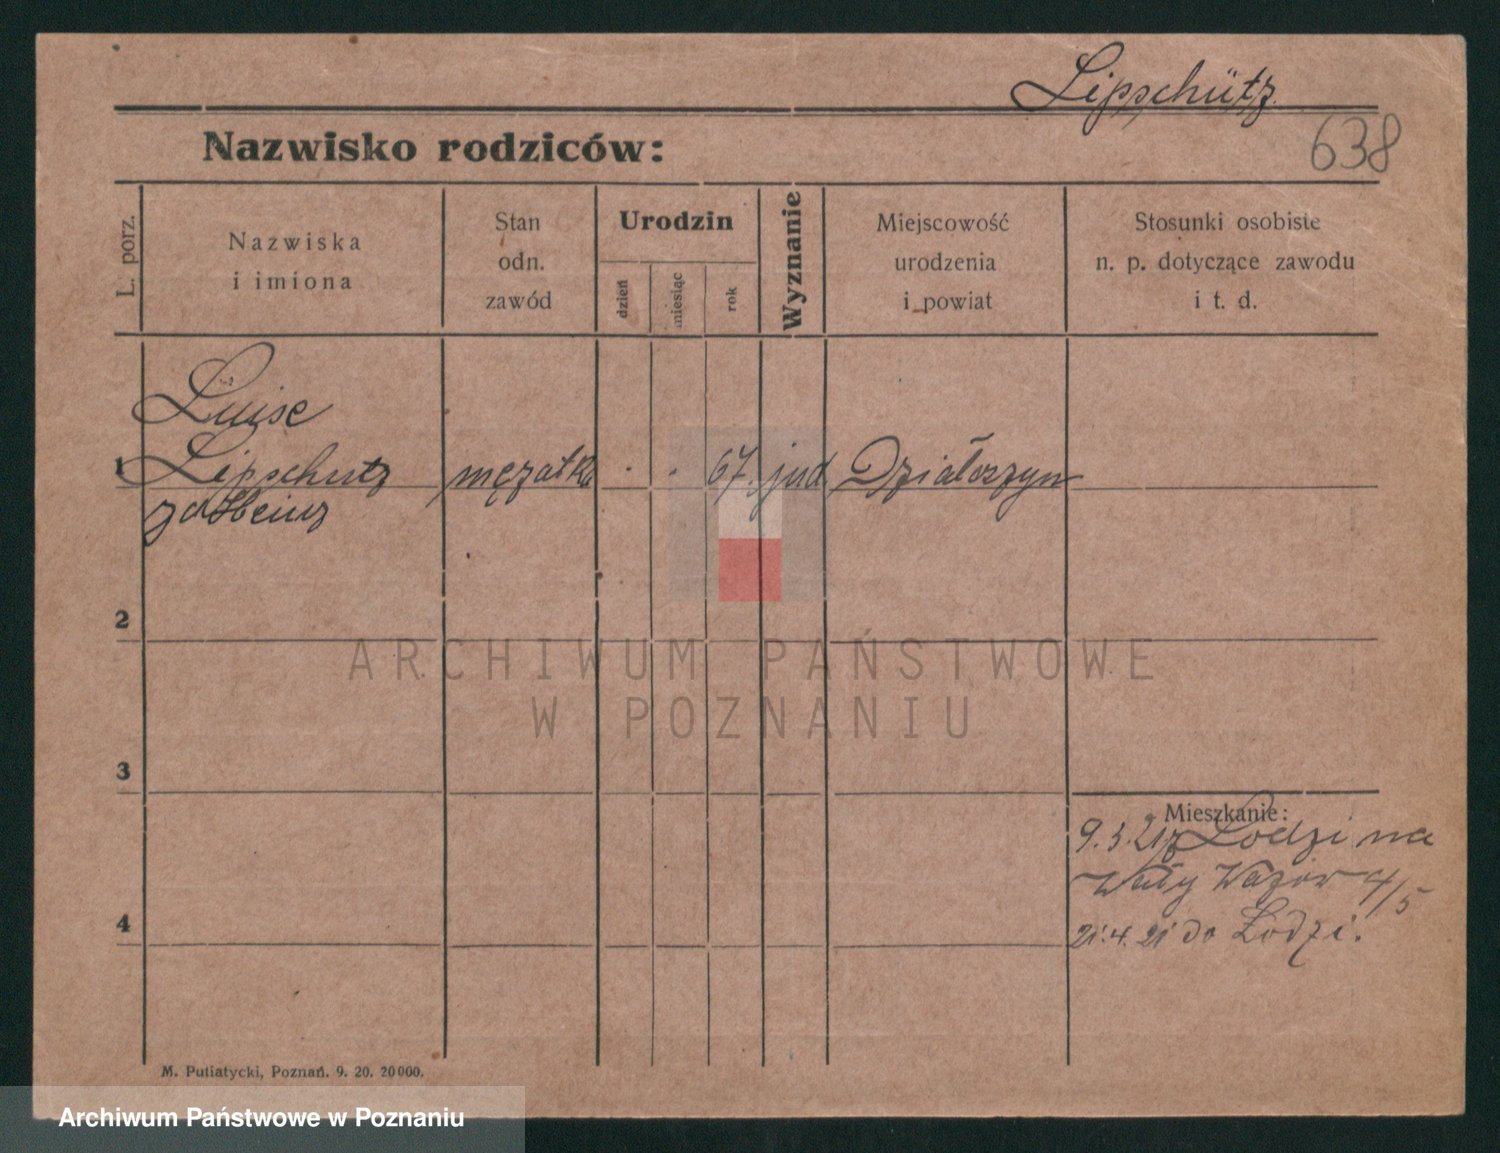 Lipschütz
638
Nazwisko rodziców:
L. porz.
Nazwiska
i imiona
Stan
odn.
zawód
Urodzin
dzień
miesiąc
rok
Wyznanie
Miejscowość
urodzenia
i powiat
Stosunki osobiste
n. p. dotyczące zawodu
i t. d.
Luise
1 Lipschutz mężatka . . 67. jud Działoszyn
2
3
4
Mieszkanie:
9.3.21 z Lodzi na
Wały Wazów 4/5
21.4.21 do Łodzi.
M. Putiatycki, Poznań. 9. 20. 20000.
ARCHIWUM PAŃSTWOWE
W POZNANIU
Archiwum Państwowe w Poznaniu